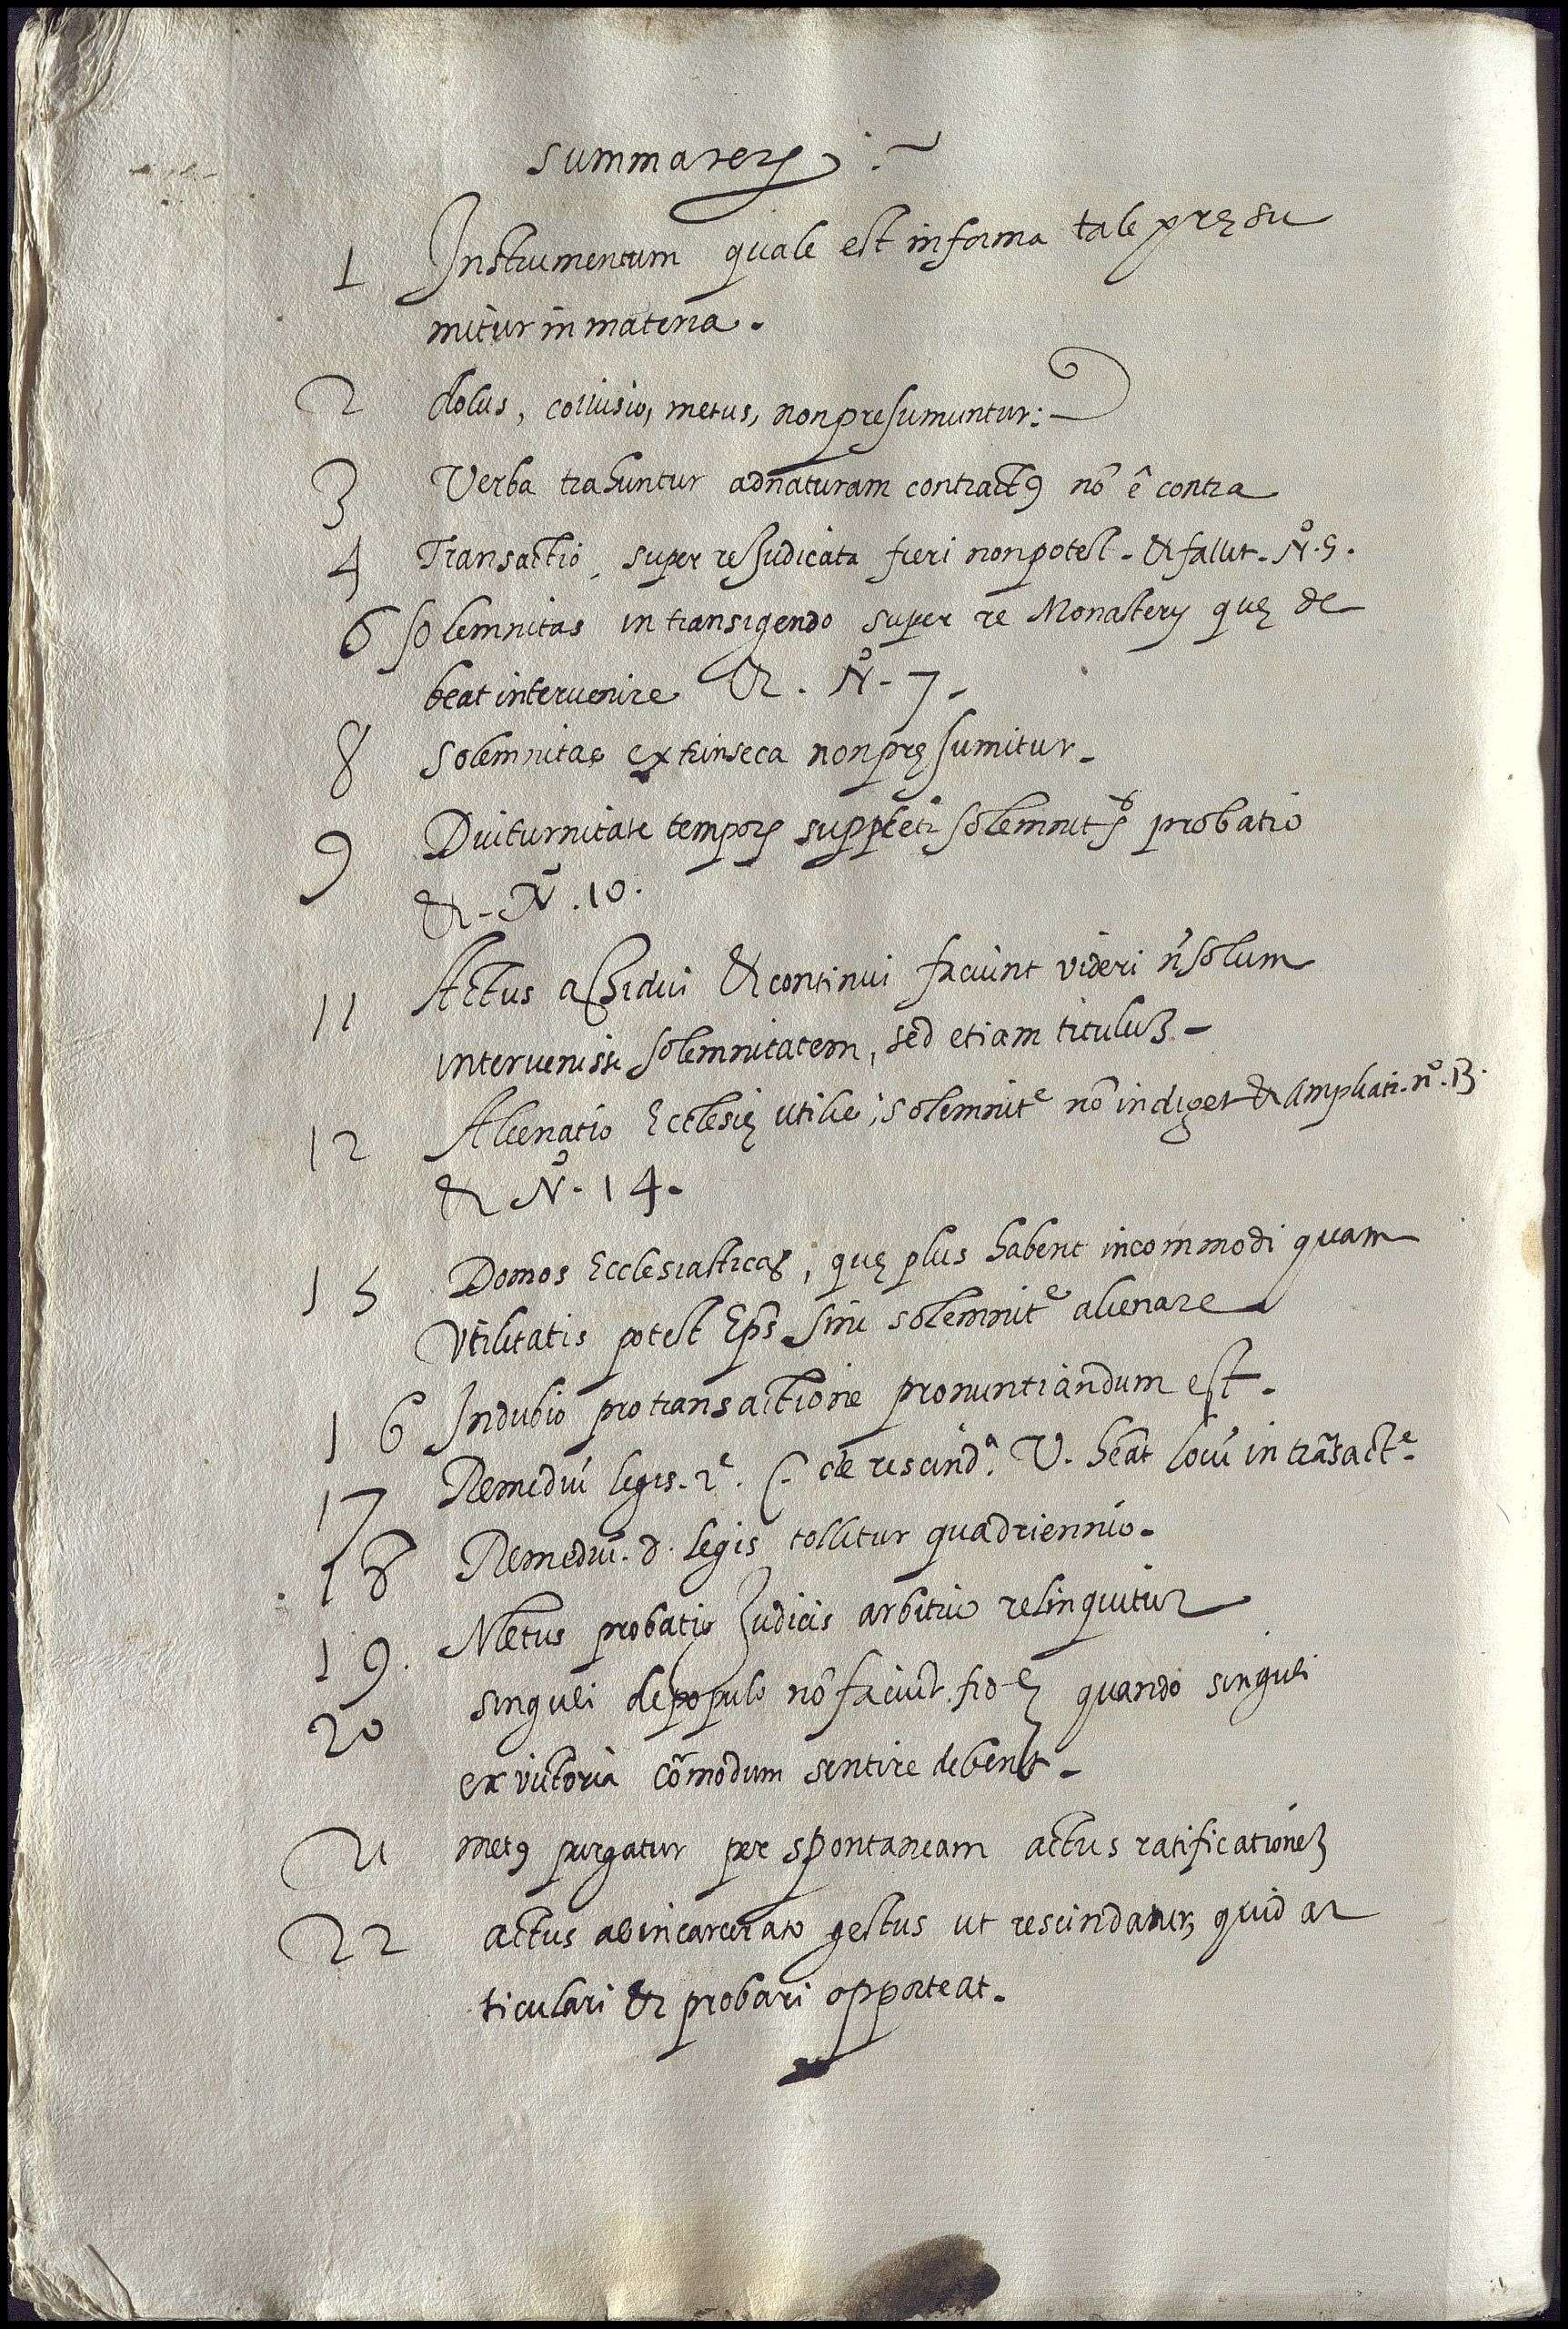 summarerz
1 Instrumentum quale est in forma tale pręsu
mitur in materia.
2 dolus, collusio, metus, non presumuntur:
3 Verba trahuntur ad naturam contractꝰ nõ ê contra
4 Transactio, super re Judicata fieri non potest - & fallit - Nº. 5.
6 solemnitas in transigendo super re Monastery quę de
beat intervenire & . Nº - 7 -
8 Solemnitas extrinseca non pręsumitur -
9 Diuturnitate temporis probatio
& - Nº. 10.
11 Actus assidui & continui faciunt videri ñ solum
intervenisse solemnitatem, sed etiam tituluʒ -
12 Alienatio Ecclesię utilis; solemnitᵉ nõ indiget & Ampliati - nº - 13.
& Nº - 14 -
15 Domos Ecclesiasticas, quę plus habent incommodi quam
Vtilitatis potest Eps̃ sine solemnitᵉ alienare
16 In dubio pro transactione pronuntiandum est -
17 Remediũ legis - 2ᵉ. C. de rescindᵃ. V. heat locũ in trãsactᵉ -
18 Remediũ - d. legis tollitur quadriennio -
19. Metus probatio Judicis arbitrio relinquitur
20 singuli de populo nõ faciũt fidẽ quando singuli
ex victoria cõmodum sentire debent -
21 metꝰ purgatur per spontaneam actus ratificationeʒ
22 actus ab incarcerato gestus ut rescindatur, quid ar
ticulari & probari opporteat -